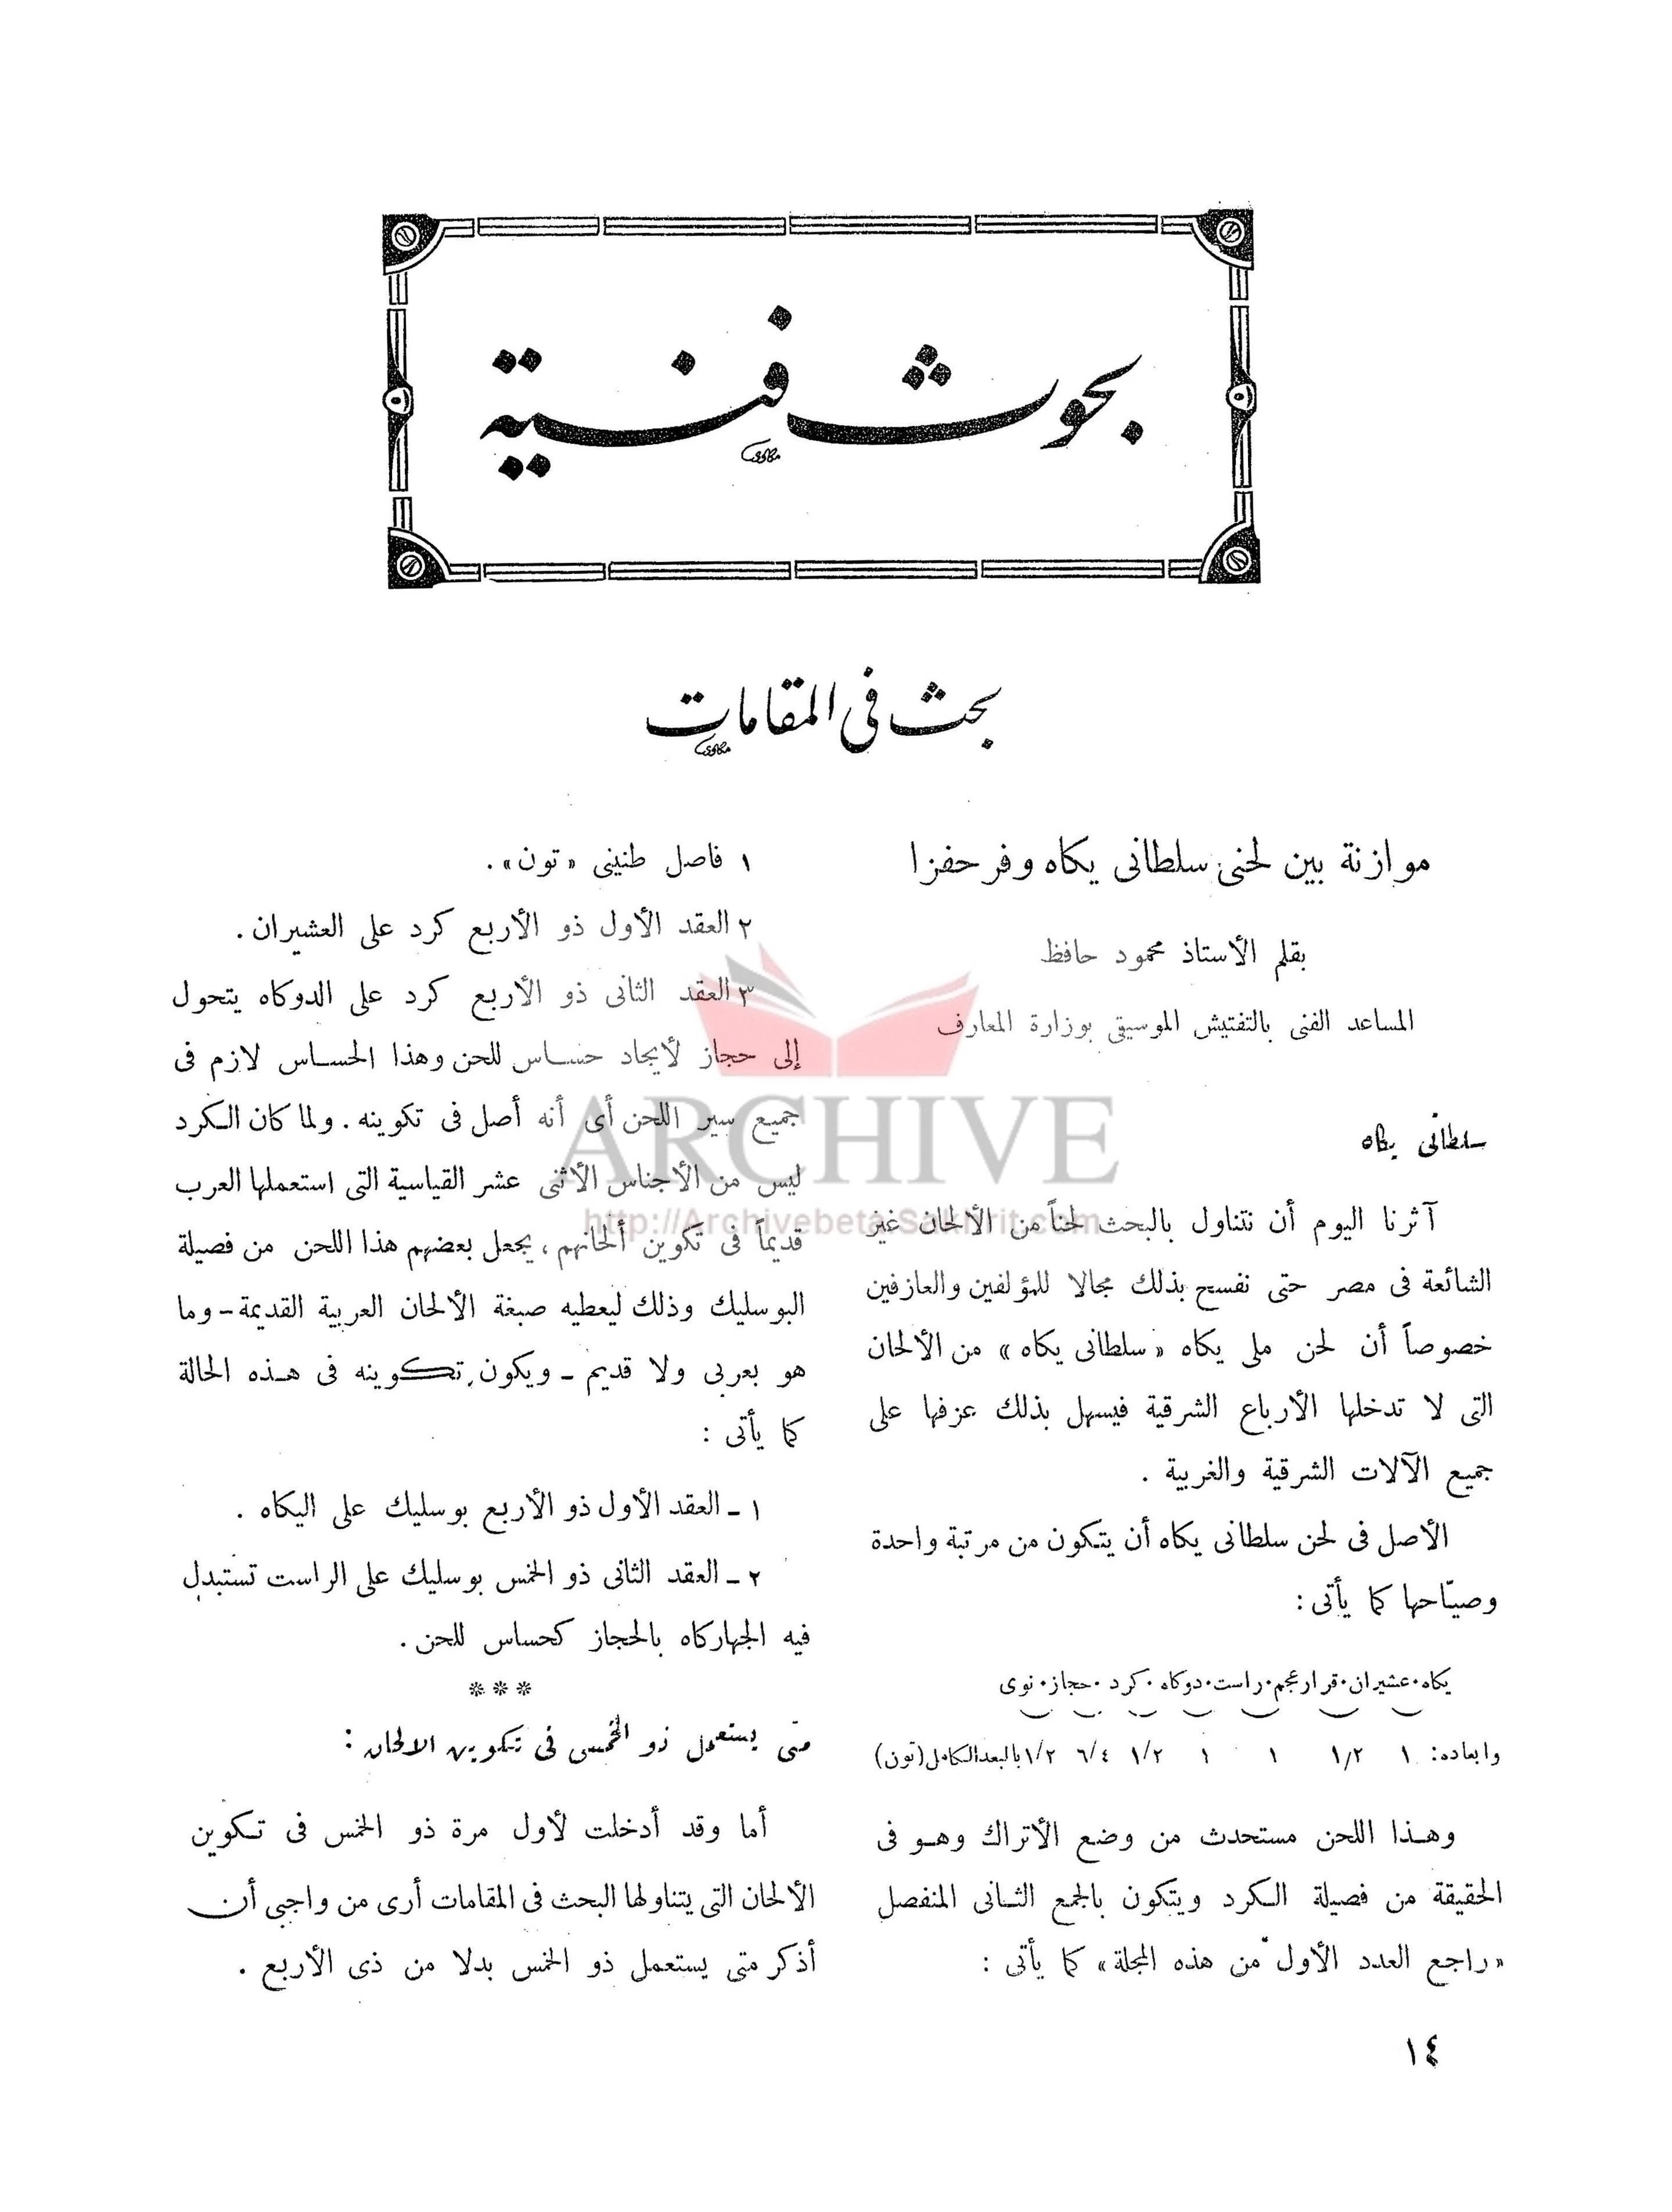 بحوث فنية
بحث فى المقامات
موازنة بين لحنى سلطانى يكاه وفرحفزا
بقلم الأستاذ محمود حافظ
المساعد الفنى بالتفتيش الموسيقى بوزارة المعارف
سلطانى يكاه
آثرنا اليوم أن نتناول بالبحث لحناً من الألحان غير
الشائعة فى مصر حتى نفسح بذلك مجالا للمؤلفين والعازفين
خصوصاً أن لحن ملى يكاه «سلطانى يكاه» من الألحان
التى لا تدخلها الأرباع الشرقية فيسهل بذلك عزفها على
جميع الآلات الشرقية والغربية .
الأصل فى لحن سلطانى يكاه أن يتكون من مرتبة واحدة
وصيّاحها كما يأتى :
يكاه . عشيران . قرار عجم . راست . دوكاه . كرد . حجاز . نوى
وابعاده : ١ ١/٢ ١ ١ ١/٢ ٦/٤ ١/٢ بالبعد الكامل (تون)
وهذا اللحن مستحدث من وضع الأتراك وهو فى
الحقيقة من فصيلة الكرد ويتكون بالجمع الثانى المنفصل
«راجع العدد الأول من هذه المجلة» كما يأتى :
١ فاصل طنينى «تون» .
٢ العقد الأول ذو الأربع كرد على العشيران .
٣ العقد الثانى ذو الأربع كرد على الدوكاه يتحول
إلى حجاز لأيجاد حساس للحن وهذا الحساس لازم فى
جميع سير اللحن أى أنه أصل فى تكوينه . ولما كان الكرد
ليس من الأجناس الأثنى عشر القياسية التى استعملها العرب
قديماً فى تكوين ألحانهم ، يجعل بعضهم هذا اللحن من فصيلة
البوسليك وذلك ليعطيه صبغة الألحان العربية القديمة – وما
هو بعربى ولا قديم – ويكون تكوينه فى هذه الحالة
كما يأتى :
١ – العقد الأول ذو الأربع بوسليك على اليكاه .
٢ – العقد الثانى ذو الخمس بوسليك على الراست تستبدل
فيه الجهاركاه بالحجاز كحساس للحن .
***
متى يستعمل ذو الخمس فى تكوين الالحان :
أما وقد أدخلت لأول مرة ذو الخمس فى تكوين
الألحان التى يتناولها البحث فى المقامات أرى من واجبى أن
أذكر متى يستعمل ذو الخمس بدلا من ذى الأربع .
١٤
ARCHIVE
http://Archivebeta.Sakhrit.com